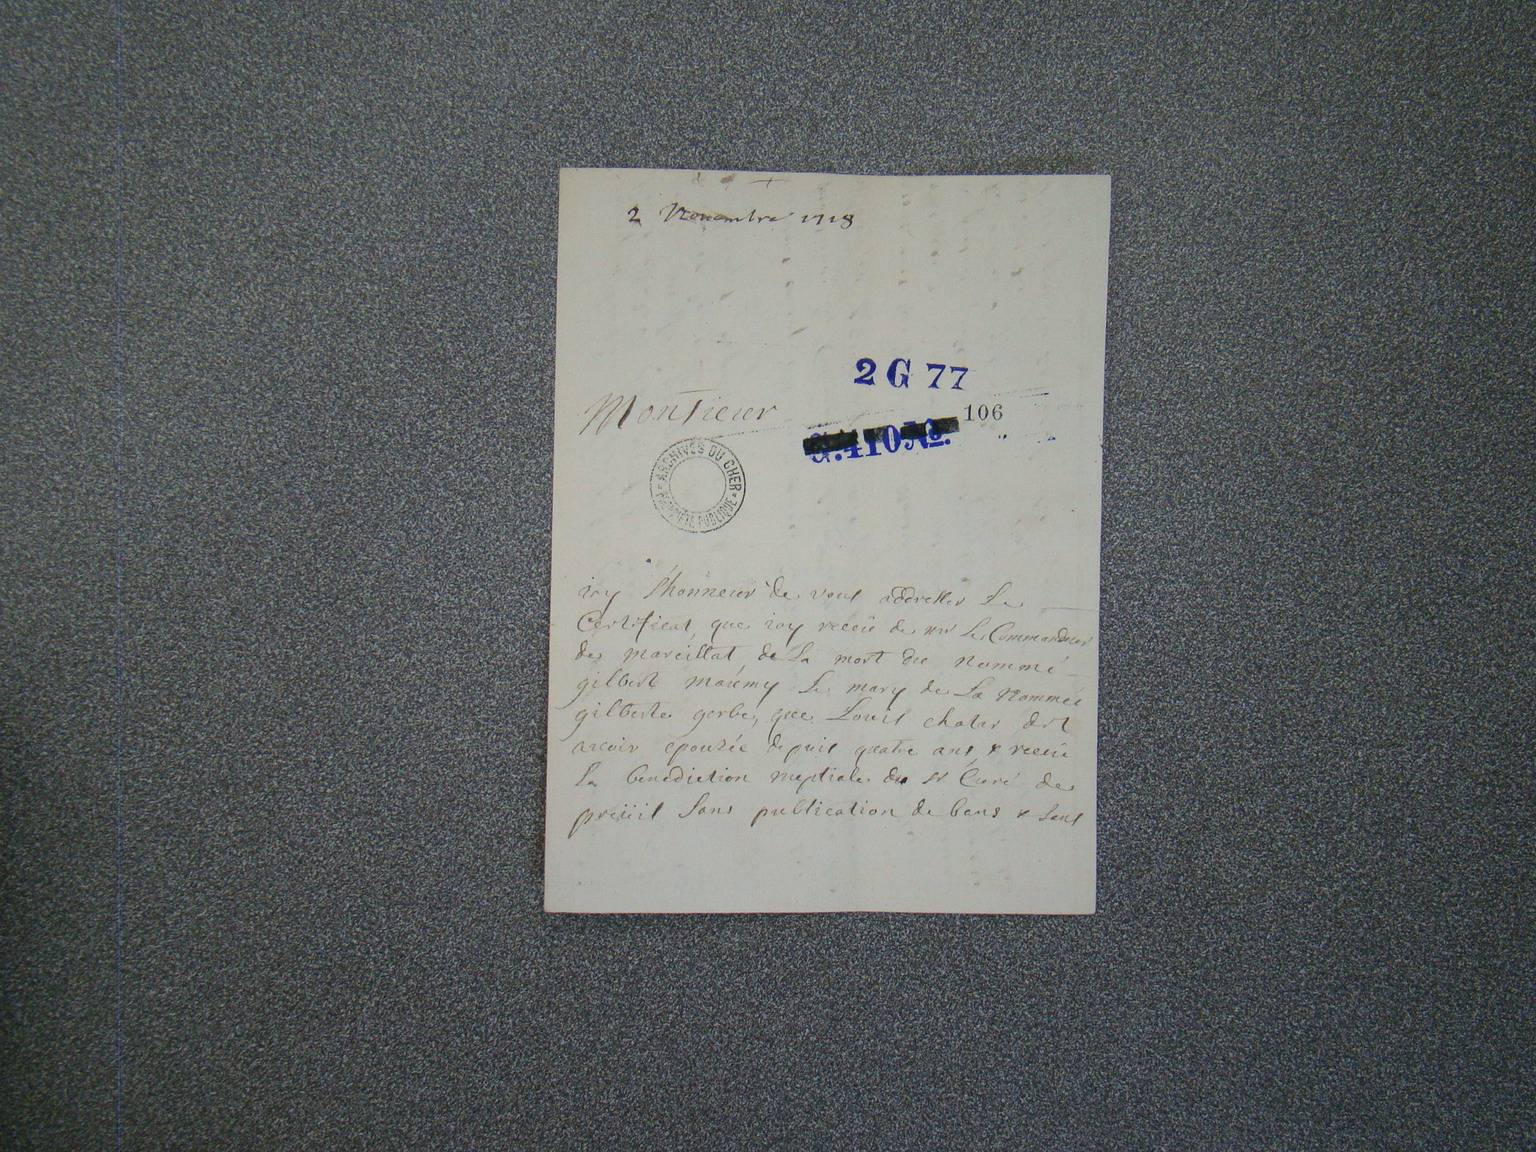 2 Nouembre 1718
2 G 77
Monsieur
106
G.410 No.
ARCHIVES DU CHER
PROPRIÉTÉ PUBLIQUE
iay l'honneur de vous addresser Le
Certificat, que iay receü de mr Le Commandeur
de mareillat, de La mort du nommé
gilbert maumy Le mary de La nommée
gilberte gerbe, que Louis chater dit
auoir epousée depuis quatre ans & receü
La benediction nuptiale du sr Curé de
preüil sans publication de bans & sans